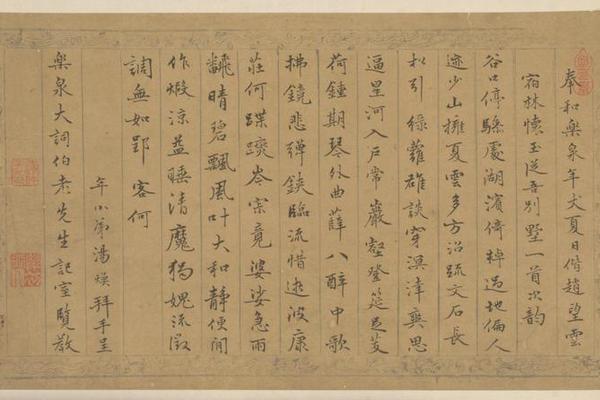 奉和樂泉年丈夏日偕趙望雲
宿林懷玉逕吾別墅一首次韵
谷口停驂處湖濱倚棹過地偏人
迹少山擁夏雲多方沼疏文石長
松引綠蘿雄談穿溟涬爽思
逼星河入戶常巖壑登筵足芰
荷鍾期琴外曲薛八醉中歌
拂鏡悲彈鋏臨流惜逝波康
莊何蹀躞岑寂竟婆娑急雨
翻晴碧飄風叶大和靜便閒
作緞涼益睡清魔獨媿流徵
調無如郢客何
年小弟湯煥拜手呈
樂泉大詞伯老先生記室覽教